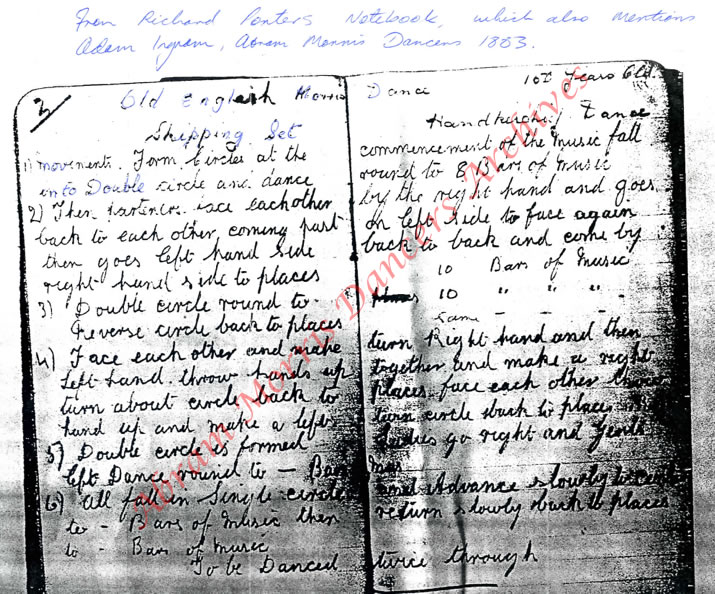 From Richard Porters Notebook, which also mentions
Adam Ingram, Abram Morris Dancers 1883.
2 Old English Morris Dance Years Old.
Skipping Set Handkerchief Dance
1) Movements. Form Circles at the commencement of the Music fall
into Double circle and dance round to 8 Bars of Music
2) Then partners face each other by the right hand and goes
back to each other coming past on left side to face again
then goes left hand side back to back and come by
right hand side to places 10 Bars of Music
3) Double circle round to 10 " " " -
Reverse circle back to places Same -
4) Face each other and make turn Right hand and then
left hand. throw hands up together and make a right
turn about circle back to places face each other throw
hand up and make a left turn circle back to places
5) Double circle is formed Ladies go right and Gents
left Dance round to - Bars Mus
6) All fall in Single circle and Advance slowly to cent
to - Bars of Music then return slowly back to places
to - Bars of Music
To be Danced twice through
Abram Morris Dancers Archives